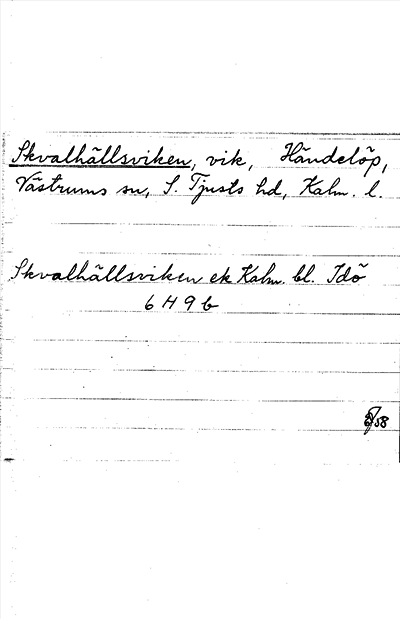 Skvalhällsviken, vik, Händelöp,
Västrums sn, S. Tjusts hd, Kalm. l.
Skvalhällsviken ek Kalm. bl. Idö
6 H 9 b
58